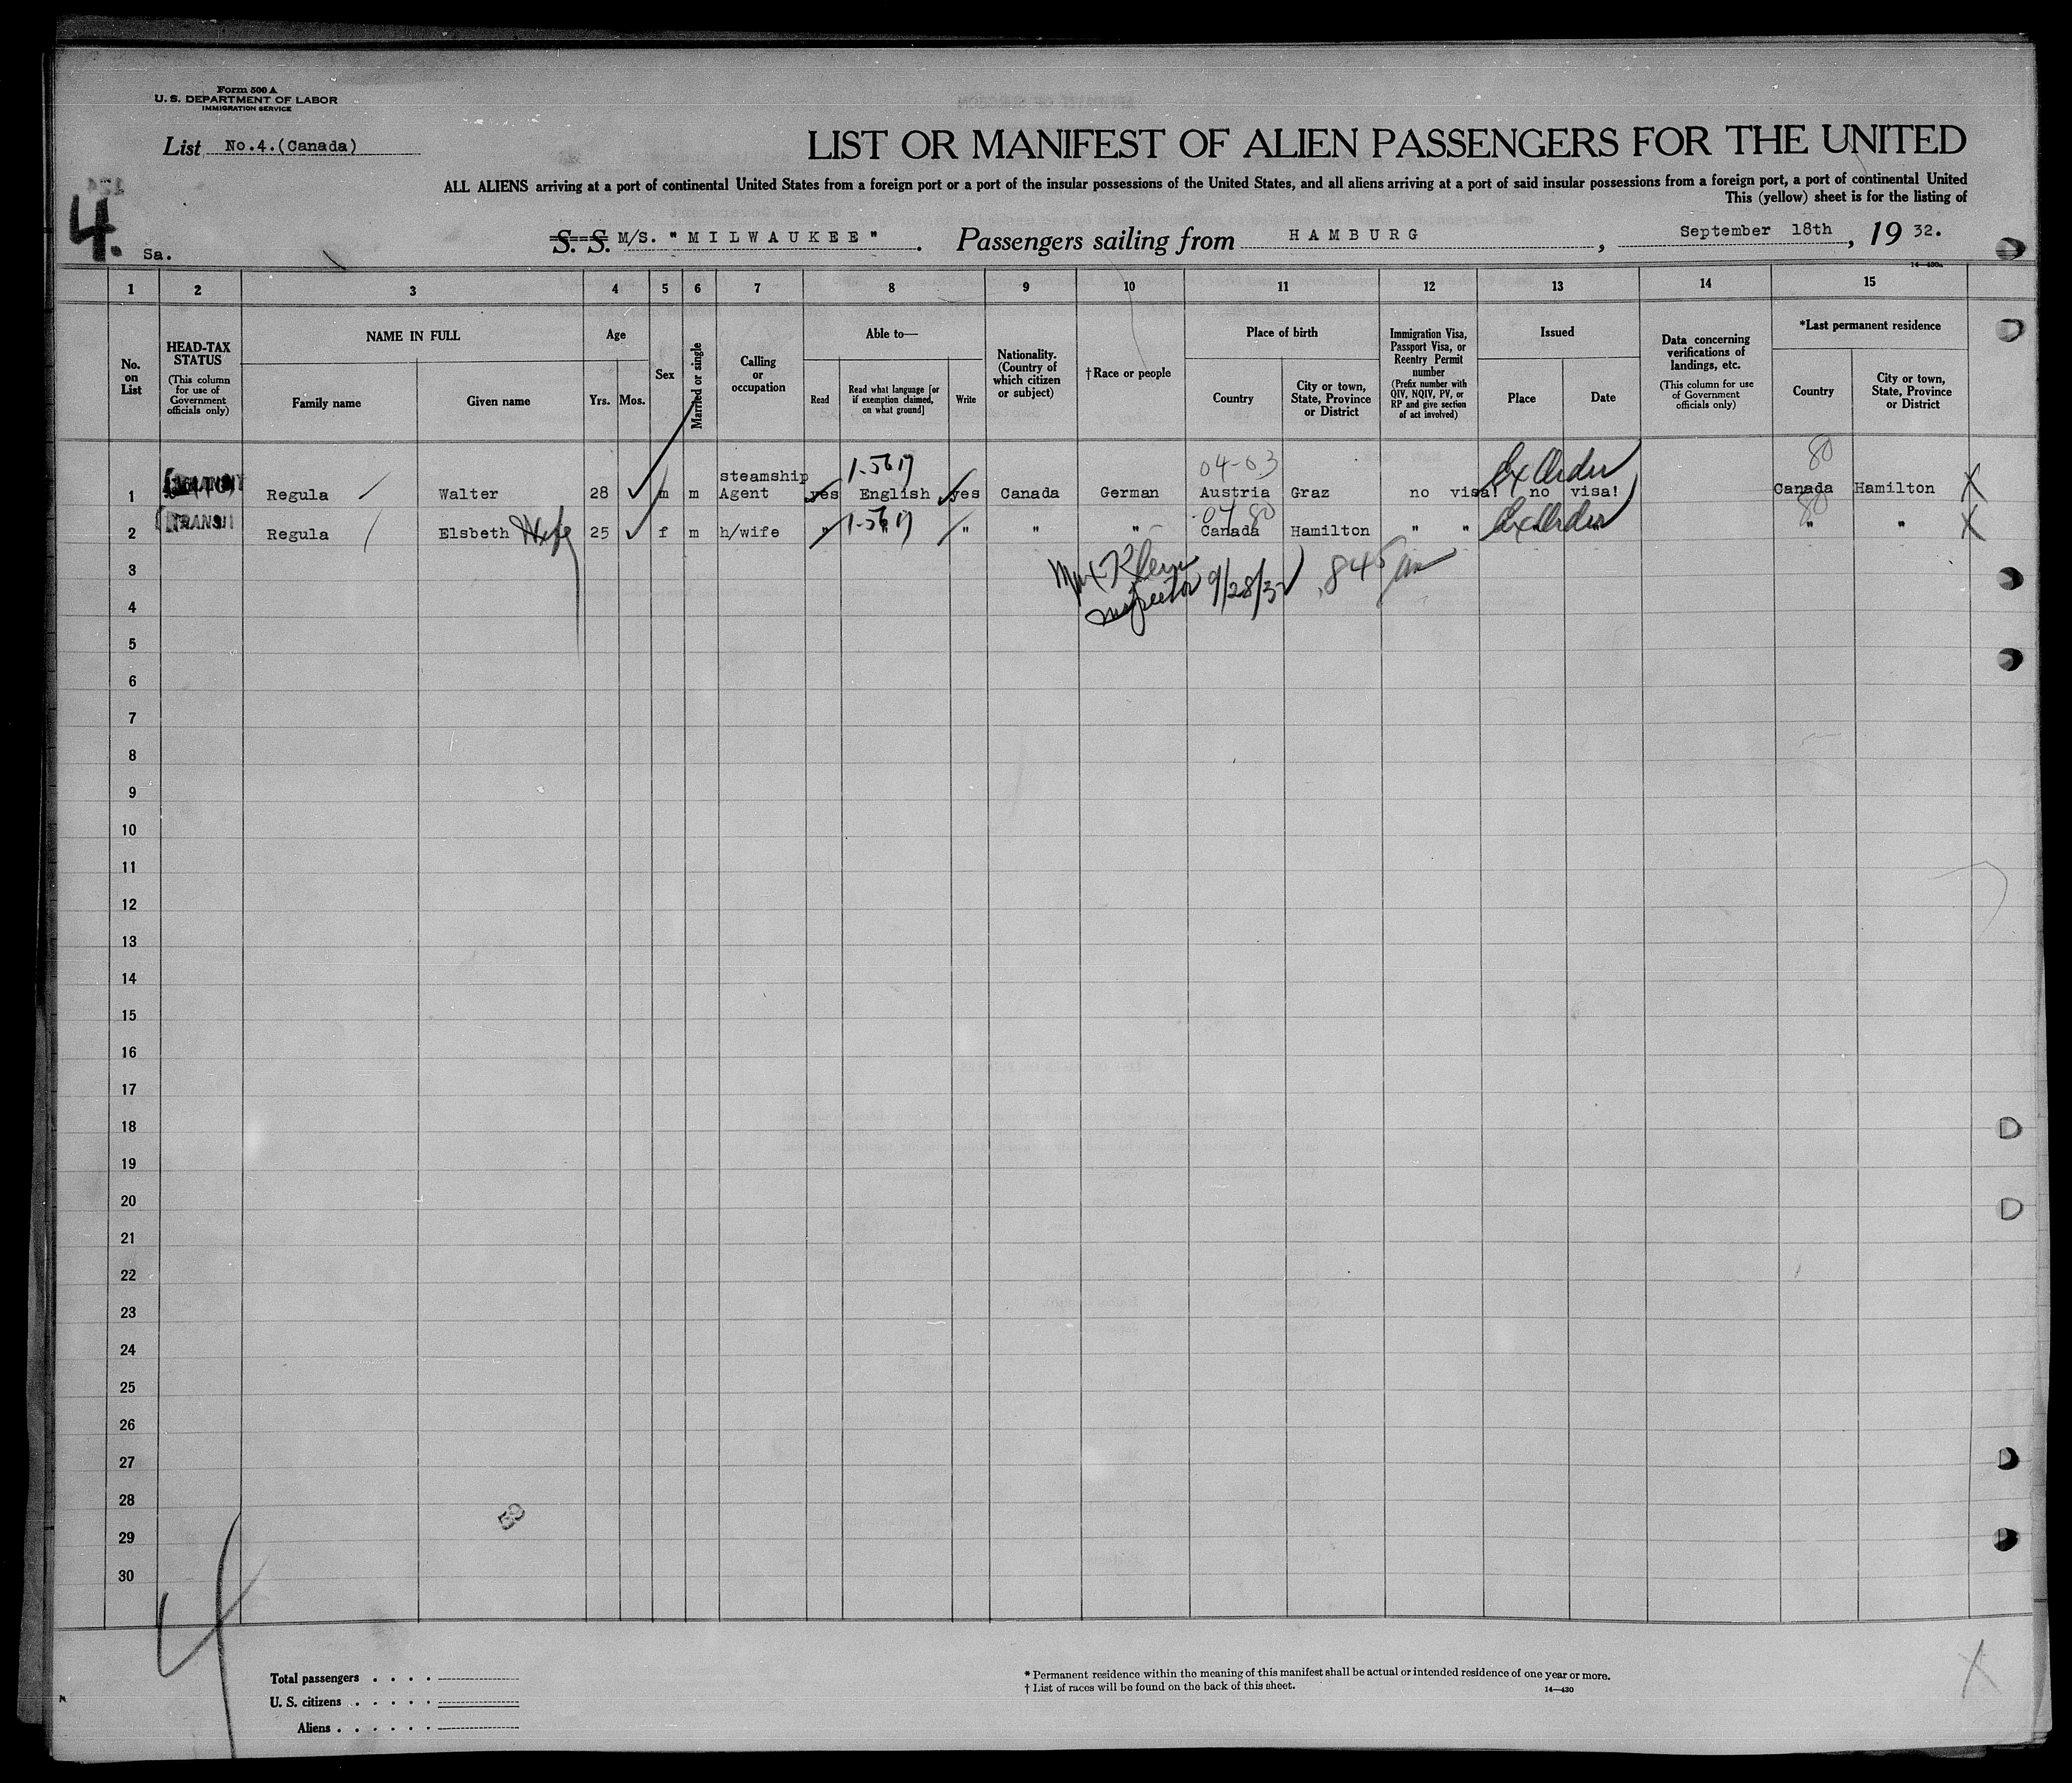 Form 500 A
U. S. DEPARTMENT OF LABOR
IMMIGRATION SERVICE
List No.4.(Canada)
LIST OR MANIFEST OF ALIEN PASSENGERS FOR THE UNITED
ALL ALIENS arriving at a port of continental United States from a foreign port or a port of the insular possessions of the United States, and all aliens arriving at a port of said insular possessions from a foreign port, a port of continental United
This (yellow) sheet is for the listing of
4.
Sa.
S. S. M/S. "MILWAUKEE". Passengers sailing from HAMBURG, September 18th, 19 32.
14—430a
1 2 3 4 5 6 7 8 9 10 11 12 13 14 15
No. on List
HEAD-TAX STATUS (This column for use of Government officials only)
NAME IN FULL
Family name
Given name
Age
Yrs. Mos.
Sex
Married or single
Calling or occupation
Able to—
Read
Read what language [or if exemption claimed, on what ground]
Write
Nationality. (Country of which citizen or subject)
†Race or people
Place of birth
Country
City or town, State, Province or District
Immigration Visa, Passport Visa, or Reentry Permit number (Prefix number with QIV, NQIV, PV, or RP and give section of act involved)
Issued
Place
Date
Data concerning verifications of landings, etc. (This column for use of Government officials only)
*Last permanent residence
Country
City or town, State, Province or District
1-5617 04-63 Ex Order 80
1 Regula Walter 28 m m steamship Agent yes English yes Canada German Austria Graz no visa! no visa! Canada Hamilton X
TRANSIT 1-5617 07 80 Ex Order 80
2 Regula Elsbeth Wife 25 f m h/wife " " " " " Canada Hamilton " " " " " X
3 Max Klein 9/28/32 845 am
Inspector
4
5
6
7
8
9
10
11
12
13
14
15
16
17
18
19
20
21
22
23
24
25
26
27
28
29
30
4
Total passengers . . . .
U. S. citizens . . . . .
Aliens . . . . . .
* Permanent residence within the meaning of this manifest shall be actual or intended residence of one year or more.
† List of races will be found on the back of this sheet.
14—430
X